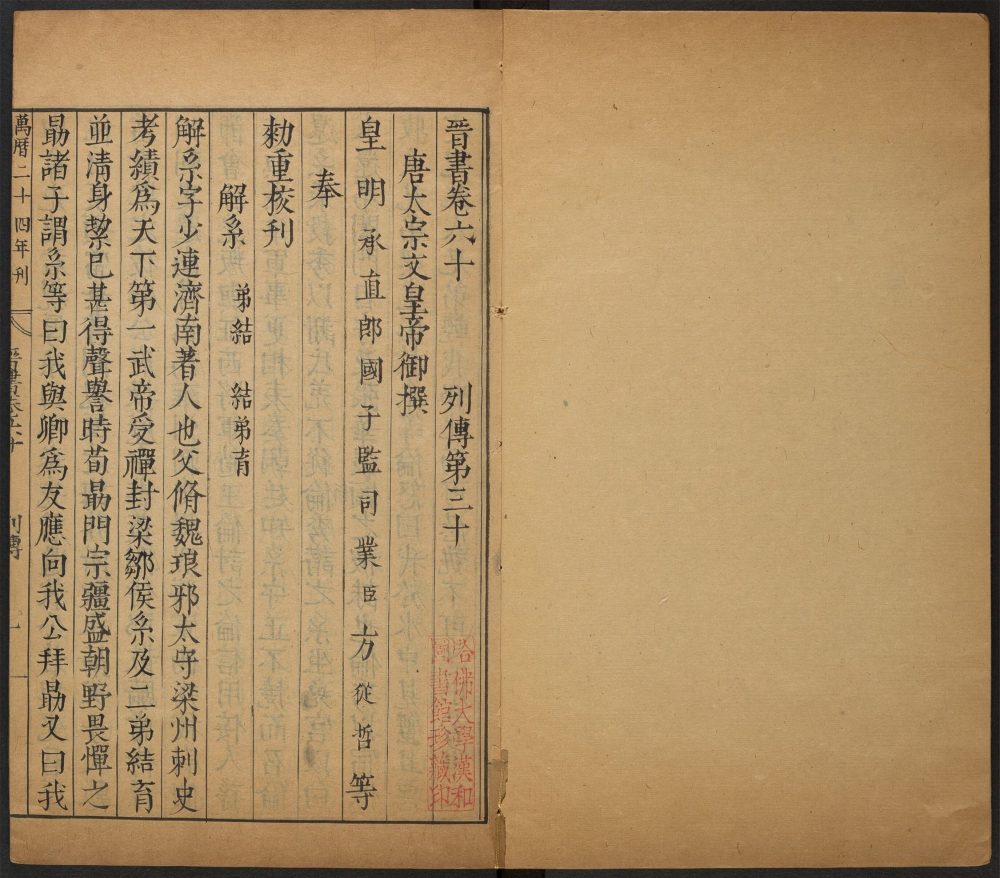 晉書卷六十　列傳第三十
唐太宗文皇帝御撰
皇明承直郎國子監司業臣方從哲等
奉
勑重校刊
解系　弟結　結弟育
解系字少連濟南著人也父脩魏琅邪太守梁州刺史
考績爲天下第一武帝受禪封梁鄒侯系及二弟結育
並清身絜已甚得聲譽時荀勗門宗疆盛朝野畏憚之
勗諸子謂系等曰我與卿爲友應向我公拜勗又曰我
萬曆二十四年刊
晉書卷六十　列傳　一
哈佛大學漢和
圖書館珍藏印